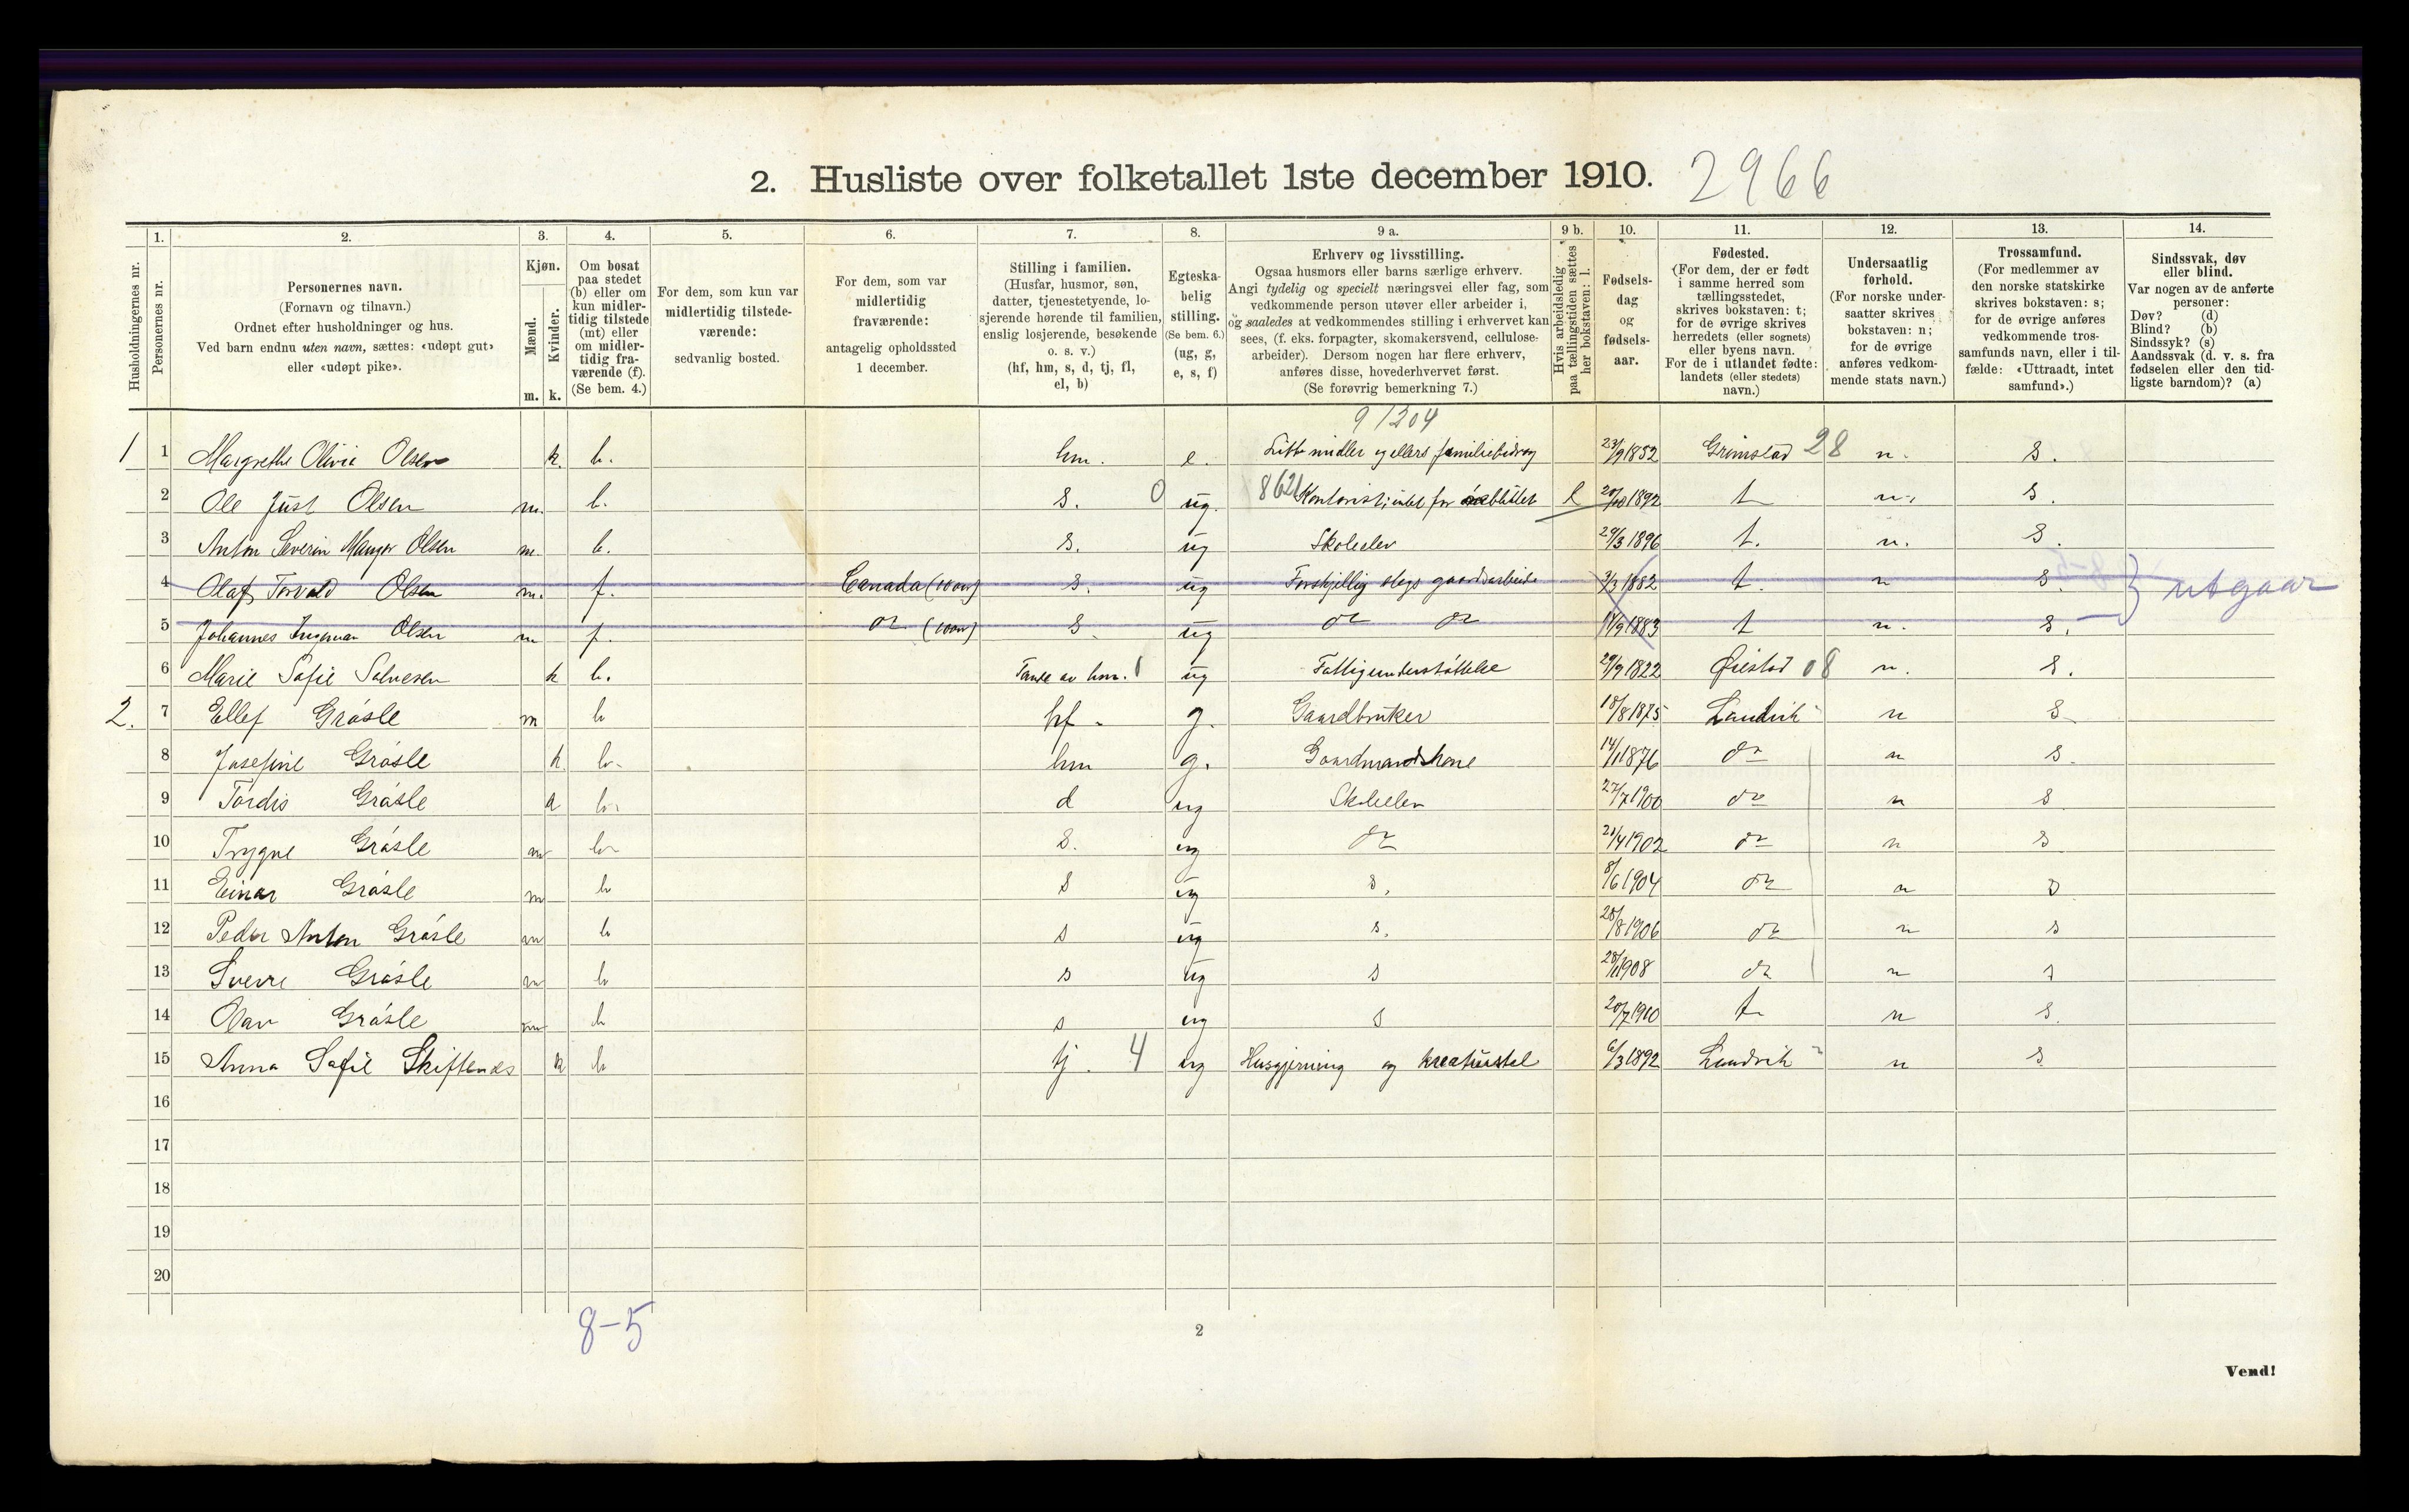 2. Husliste over folketallet 1ste december 1910. 2966
Husholdningernes nr.
1. Personernes nr.
2. Personernes navn. (Fornavn og tilnavn.) Ordnet efter husholdninger og hus. Ved barn endnu uten navn, sættes: «udøpt gut» eller «udøpt pike».
3. Kjøn. Mænd. Kvinder. m. k.
4. Om bosat paa stedet (b) eller om kun midlertidig tilstede (mt) eller om midlertidig fraværende (f). (Se bem. 4.)
5. For dem, som kun var midlertidig tilstedeværende: sedvanlig bosted.
6. For dem, som var midlertidig fraværende: antagelig opholdssted 1 december.
7. Stilling i familien. (Husfar, husmor, søn, datter, tjenestetyende, losjerende hørende til familien, enslig losjerende, besøkende o. s. v.) (hf, hm, s, d, tj, fl, el, b)
8. Egteskabelig stilling. (Se bem. 6.) (ug, g, e, s, f)
9 a. Erhverv og livsstilling. Ogsaa husmors eller barns særlige erhverv. Angi tydelig og specielt næringsvei eller fag, som vedkommende person utøver eller arbeider i, og saaledes at vedkommendes stilling i erhvervet kan sees, (f. eks. forpagter, skomakersvend, cellulosearbeider). Dersom nogen har flere erhverv, anføres disse, hovederhvervet først. (Se forøvrig bemerkning 7.)
9 b. Hvis arbeidsledig paa tællingstiden sættes her bokstaven: l.
10. Fødselsdag og fødselsaar.
11. Fødested. (For dem, der er født i samme herred som tællingsstedet, skrives bokstaven: t; for de øvrige skrives herredets (eller sognets) eller byens navn. For de i utlandet fødte: landets (eller stedets) navn.)
12. Undersaatlig forhold. (For norske undersaatter skrives bokstaven: n; for de øvrige anføres vedkommende stats navn.)
13. Trossamfund. (For medlemmer av den norske statskirke skrives bokstaven: s; for de øvrige anføres vedkommende trossamfunds navn, eller i tilfælde: «Uttraadt, intet samfund».)
14. Sindssvak, døv eller blind. Var nogen av de anførte personer: Døv? (d) Blind? (b) Sindssyk? (s) Aandssvak (d. v. s. fra fødselen eller den tidligste barndom)? (a)
9 1304
1 1 Margrethe Olivia Olsen k. b. hm. e. midler ellers familiebidrag 23/9 1852 Grimstad 28 n. s.
2 Ole Just Olsen m. b. s. 0 ug. 8621 Kontorist; intet for l 20/10 1892 t n. s.
3 Anton Severin Olsen m. b. s. ug Skoleelev 29/3 1896 t. n. s.
4 Olaf Torvald Olsen m. f. Canada s. ug Forskjellig slags gaardsarbeide 3/3 1882 t. n s. } utgaar
5 Johannes Ingeman Olsen m f. do s. ug do do 14/9 1883 t n. s.
6 Marie Sofie Salvesen k b. Tante av hm. ug Fattigunderstøttelse 29/9 1822 Øiestad 08 n. s.
2. 7 Ellef Gråsle m b hf. g. Gaardbruker 18/8 1875 Landvik n s
8 Josefine Gråsle k b. hm g. Gaardmandskone 14/11 1876 do n s.
9 Tordis Gråsle k b. d ug Skoleelev 27/7 1900 do n s
10 Trygve Gråsle m b s. ug do 21/4 1902 do n s
11 Einar Gråsle m b s ug s. 8/6 1904 do n s
12 Peder Anton Gråsle m b s ug s. 28/8 1906 do n s
13 Sverre Gråsle m b s ug s 1908 do n s
14 Olav Gråsle m b s ug s 20/7 1910 t n s.
15 Anna Sofie Skiftenes k b tj. 4 ug Husgjerning og kreaturstel 6/3 1892 Landvik n s
16
17
18
19
20
8-5
2
Vend!